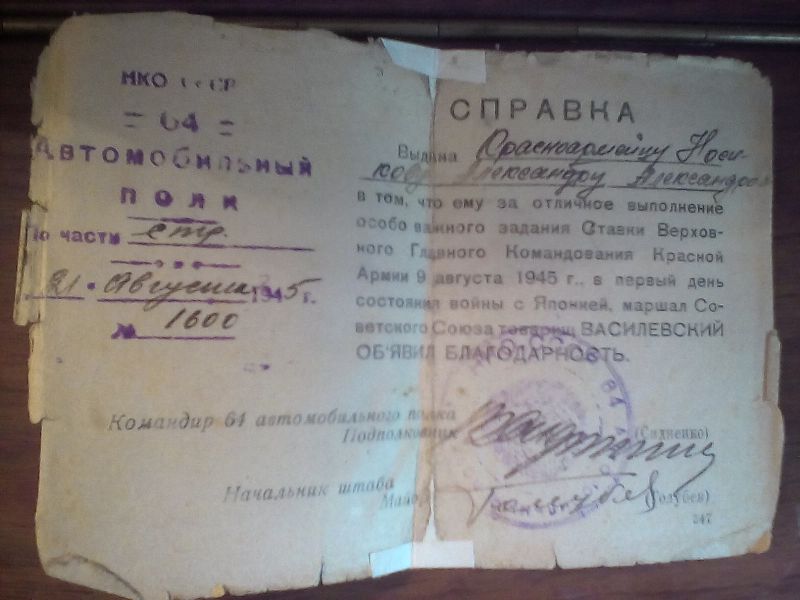 НКО СССР
= 64 =
АВТОМОБИЛЬНЫЙ
ПОЛК
По части стр.
21 • Августа 1945 г.
№ 1600
СПРАВКА
Выдана Красноармейцу Носи-
кову Александру Александров
в том, что ему за отличное выполнение
особо важного задания Ставки Верхов-
ного Главного Командования Красной
Армии 9 августа 1945 г., в первый день
состояния войны с Японией, маршал Со-
ветского Союза товарищ ВАСИЛЕВСКИЙ
ОБ'ЯВИЛ БЛАГОДАРНОСТЬ.
Командир 64 автомобильного полка
Подполковник (Сидненко)
Начальник штаба
Майор (Голубев)
247